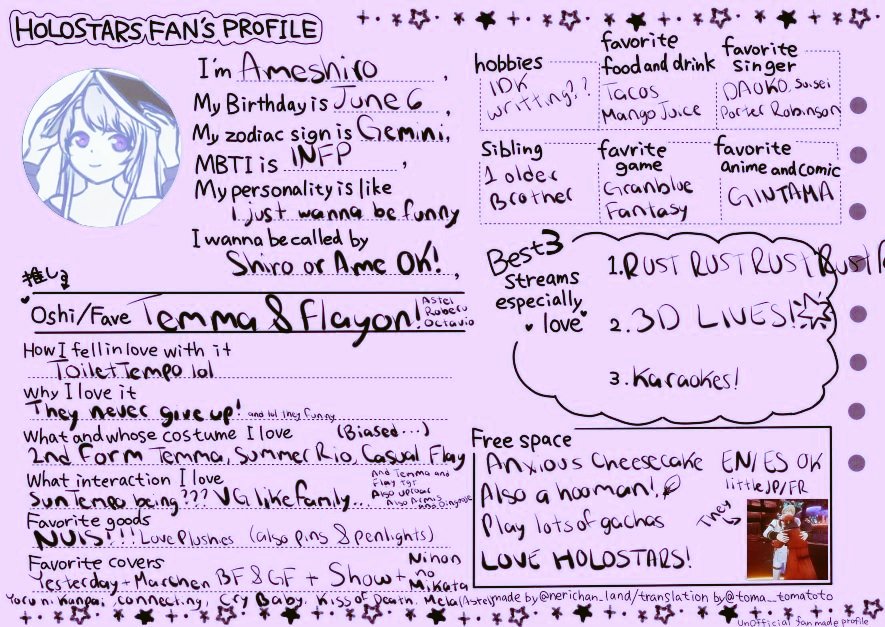 HOLOSTARS FAN'S PROFILE
I'm Ameshiro,
My Birthday is June 6,
My zodiac sign is Gemini,
MBTI is INFP,
My personality is like
I just wanna be funny
I wanna be called by
Shiro or Ame OK!,
hobbies
IDK
writting?,?
favorite
food and drink
Tacos
Mango Juice
favorite
singer
DAOKO, Suisei
Porter Robinson
Sibling
1 older
Brother
favrite
game
Granblue
Fantasy
favorite
anime and comic
GINTAMA
推し
Oshi/Fave Temma & Flayon!
Astel
Roberu
Octavio
How I fell in love with it
Toilet Tempo lol
Why I love it
They never give up! and lol they funny
What and whose costume I love (Biased...)
2nd Form Temma, Summer Rio, Casual Flay
What interaction I love
Sun Tempo being??? VG like family...
And Temma and
Flay tgt
Also UPROAR
Also Armis
Favorite goods
NUIS!!! Love Plushies (also pins & penlights)
Favorite covers
Yesterday + Marchen BF & GF + Show +
Nihon
no
Mikata
Yoru ni Kanpai, connecting, Cry Baby, Kiss of Death, Mela (Astel)
Best 3
Streams
especially
love
1. RUST RUST RUST Rust
2. 3D LIVES!
3. Karaokes!
Free space
Anxious Cheesecake
Also a hooman!
Play lots of gachas
LOVE HOLOSTARS!
EN/ES OK
little JP/FR
They
made by@nerichan_land/translation by@toma__tomatoto
Unofficial fan made profile